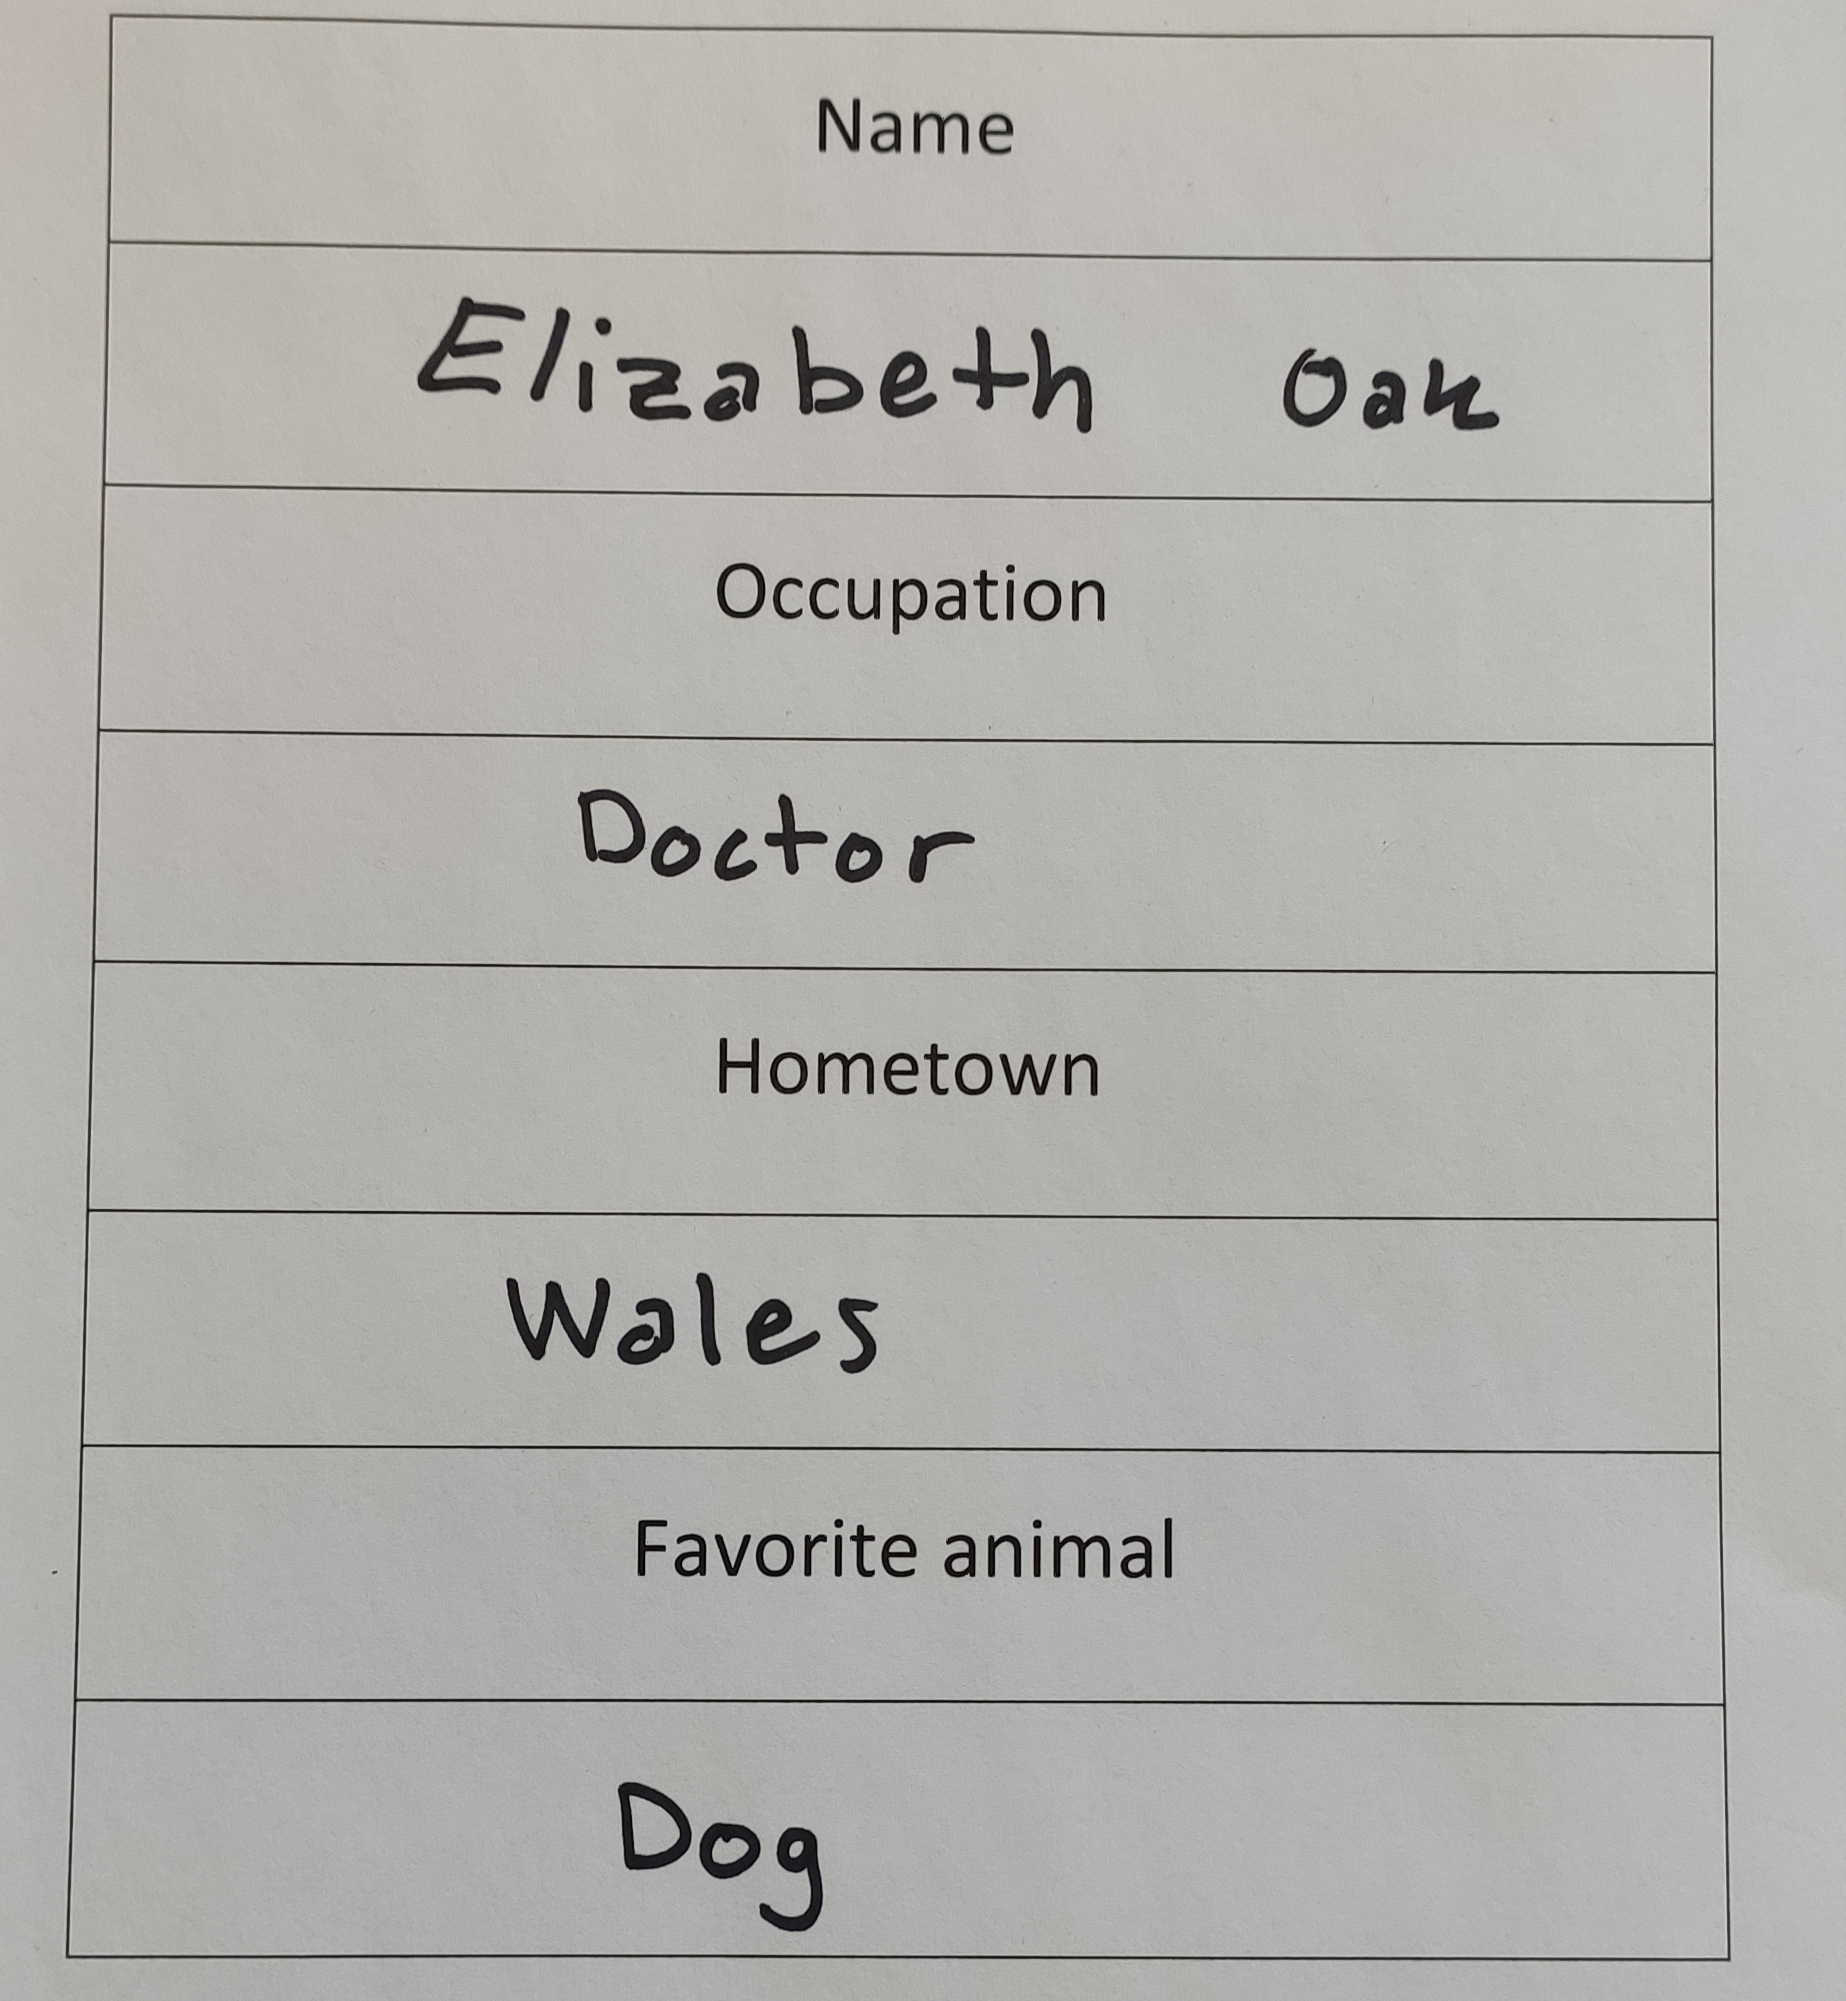 Name
Elizabeth Oak
Occupation
Doctor
Hometown
Wales
Favorite animal
Dog